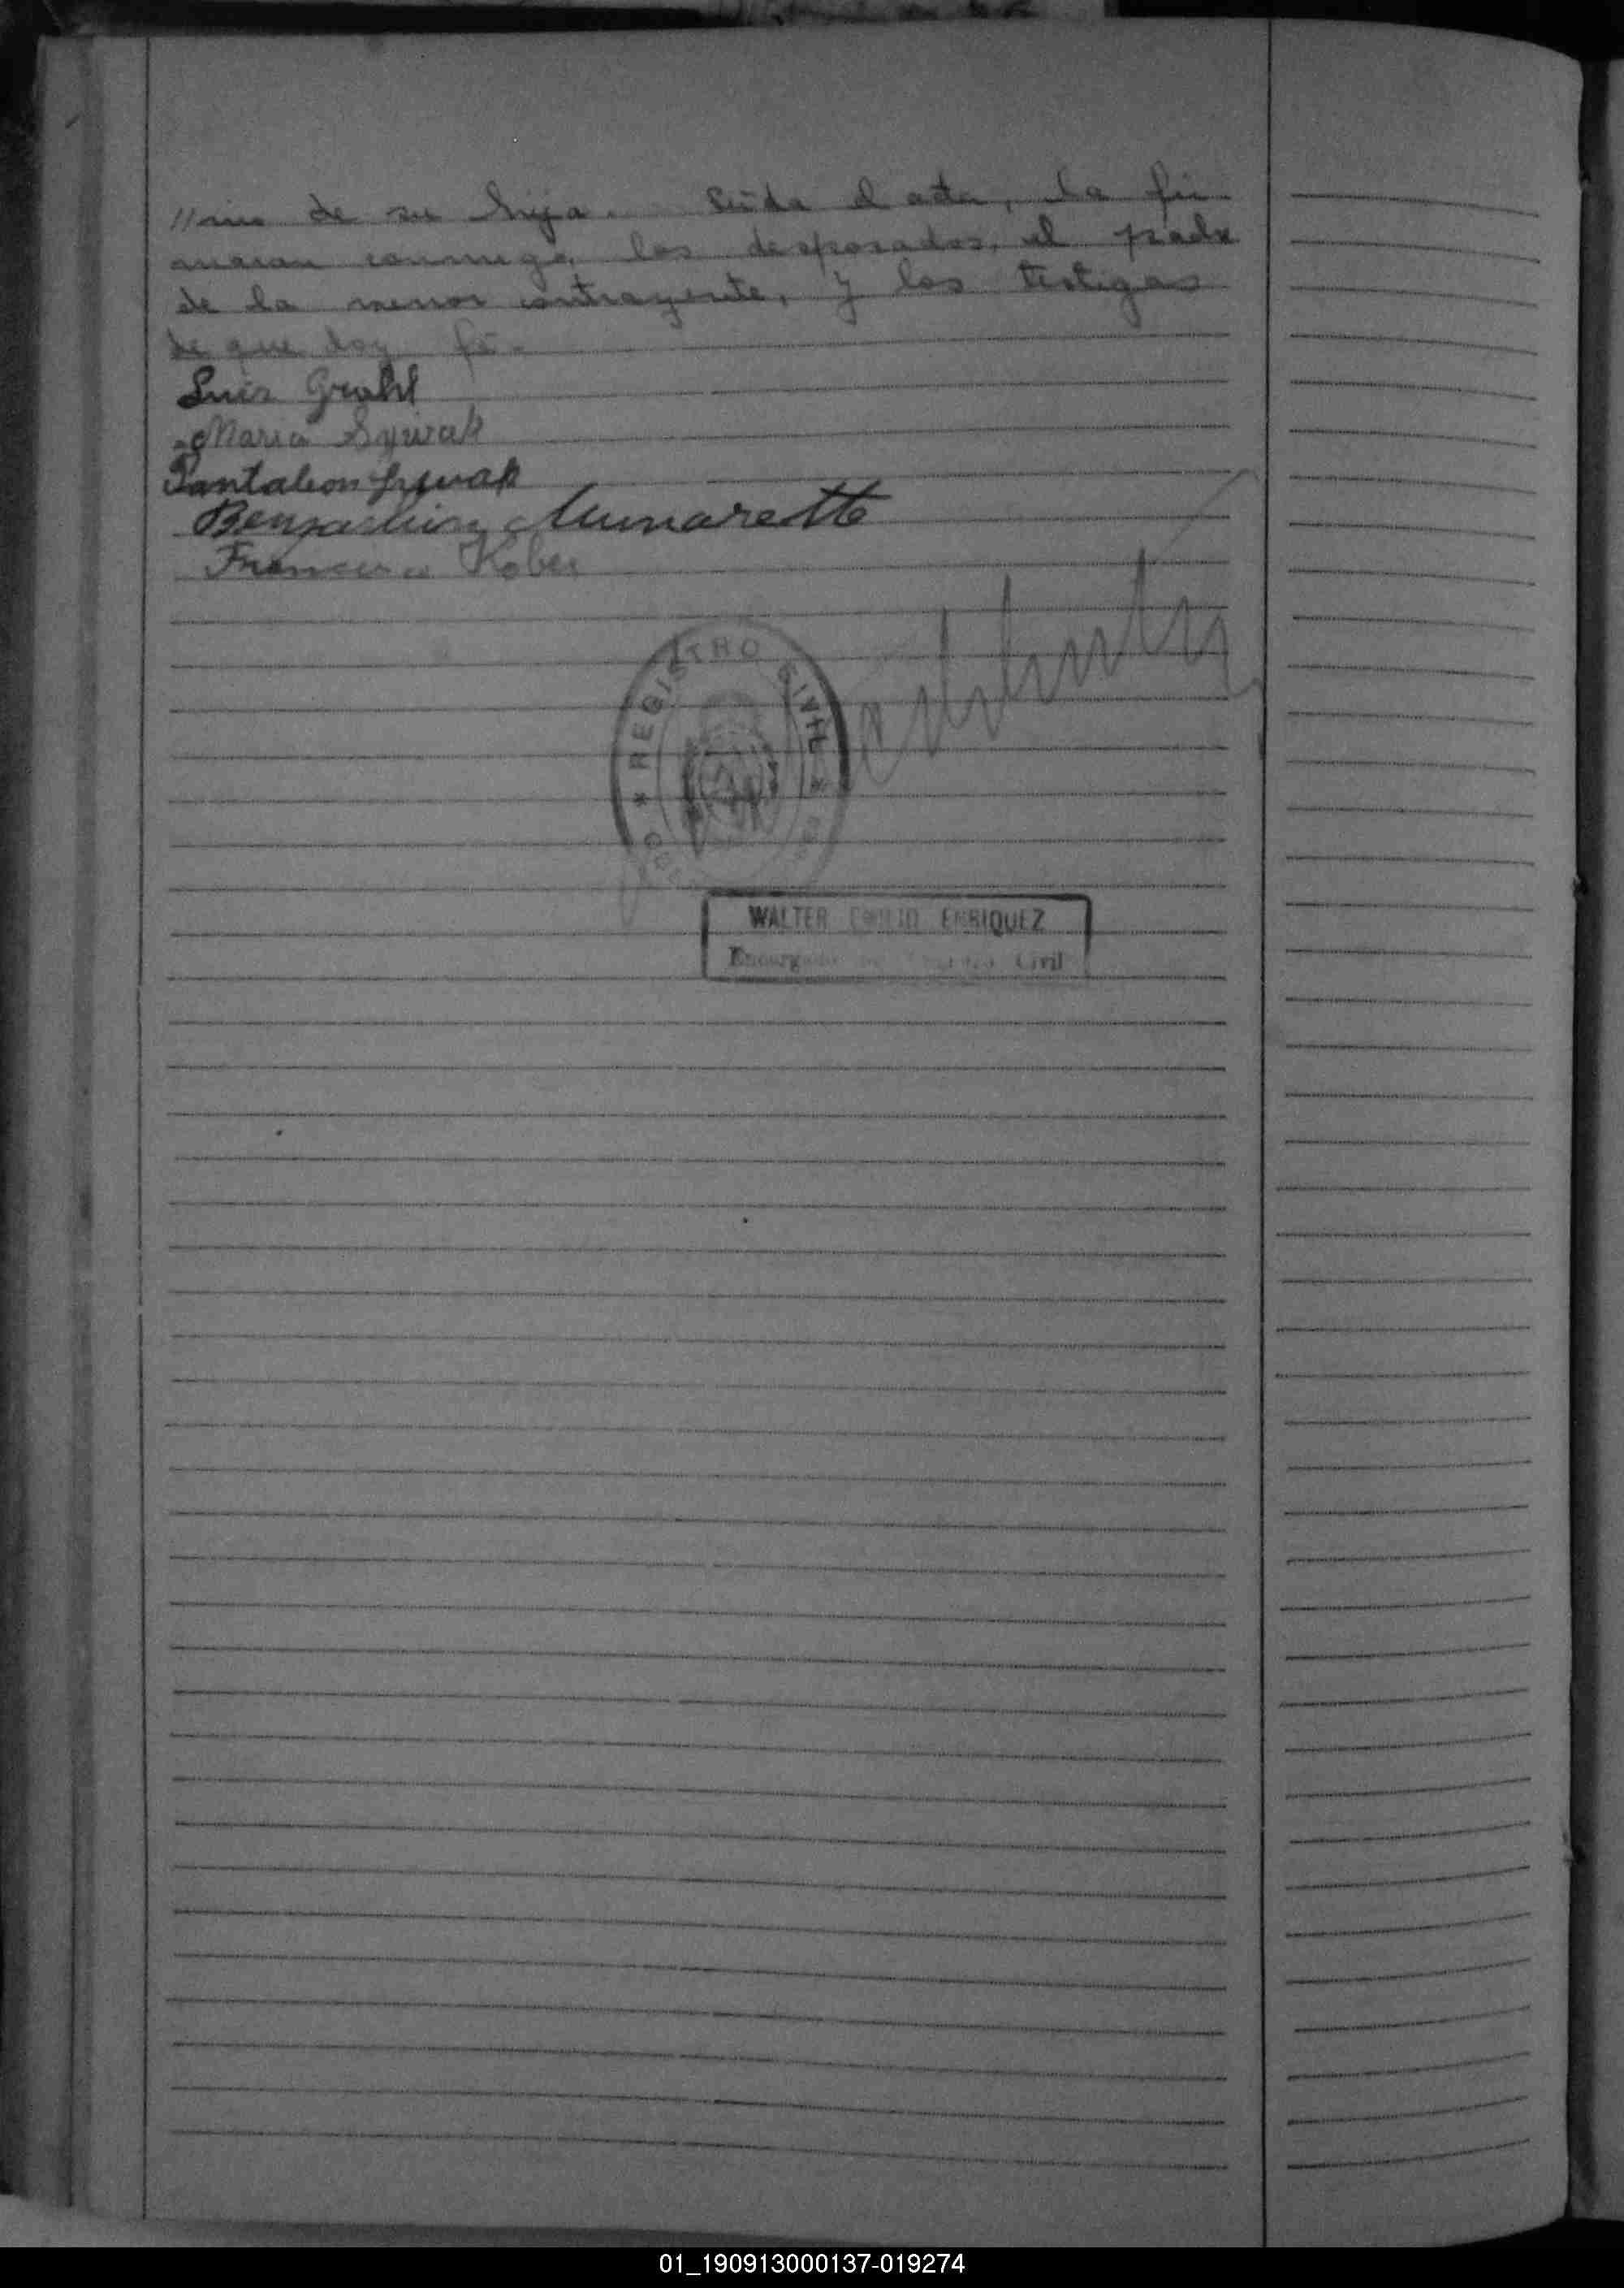 //nio de su hija. Leída el acta, la fir
maron conmigo, los desposados, el padre
de la menor contrayente, y los testigos
de que doy fé.-
Luis Grahl
Maria Sywak
Pantaleon Sywak
Munaretto
Francisco Kober
* REGISTRO CIVIL *
WALTER EMILIO ENRIQUEZ
Encargado Civil
01_190913000137-019274